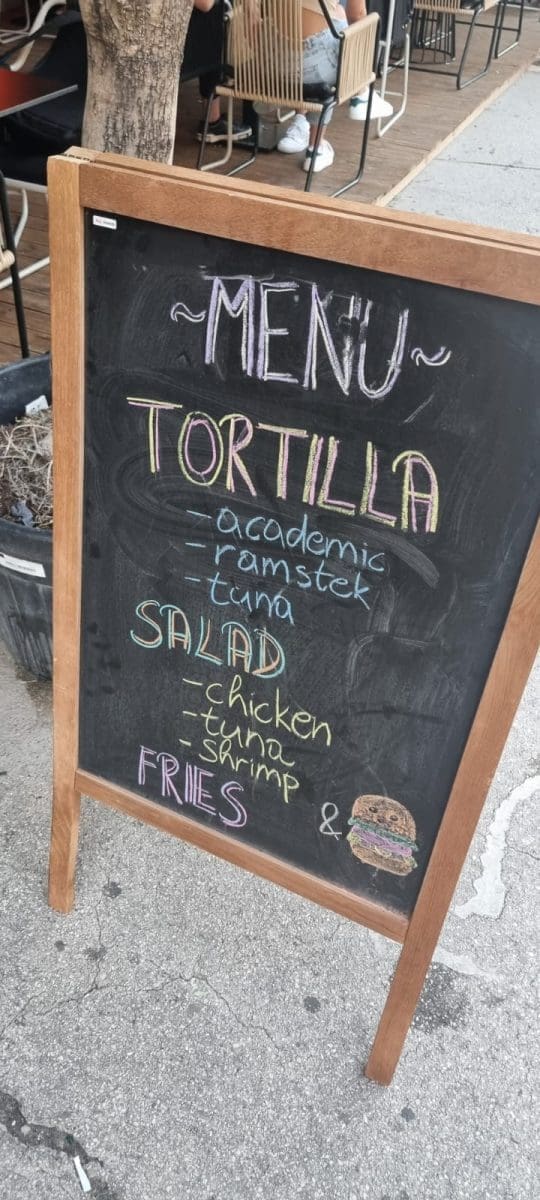 ~MENU~
TORTILLA
-academic
-ramstek
-tuna
SALAD
-chicken
-tuna
-shrimp
FRIES &